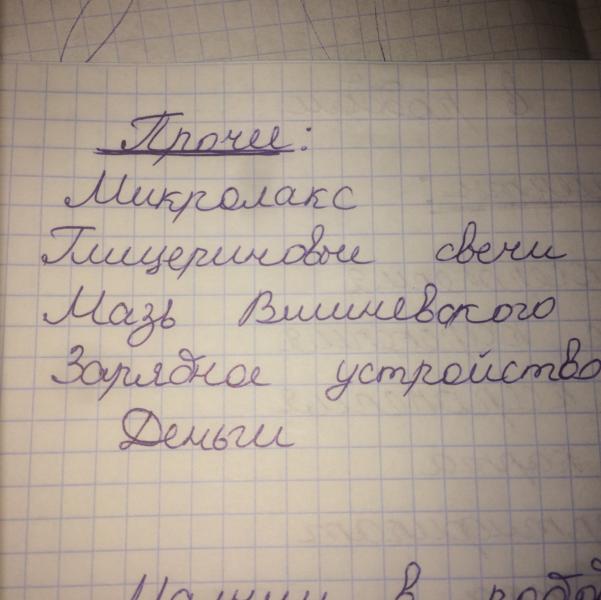 Прочее:
Микролакс
Глицериновые свечи
Мазь Вишневского
Зарядное устройство
Деньги
в